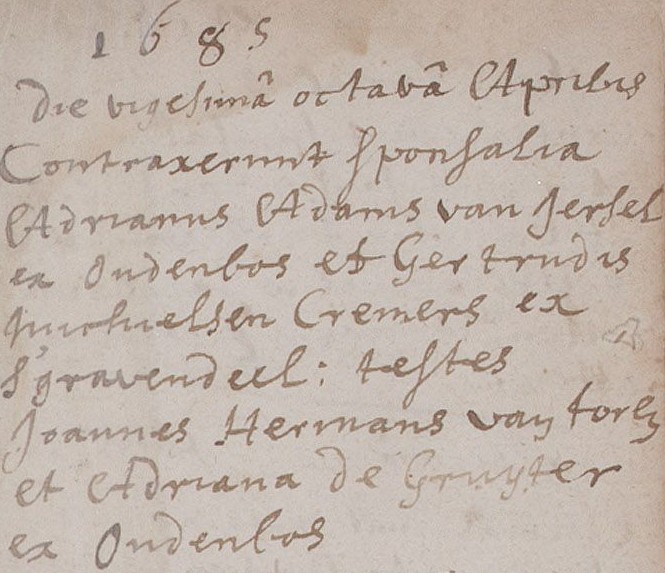 1685
Die vigesimâ octavâ Aprilis
Contraxerunt sponsalia
Adrianus Adams van Jersel
ex Oudenbos et Gertrudis
Michielsen Cremers ex
s'gravendeel: testes
Joannes Hermans van
et Adriana de Gruyter
ex Oudenbos